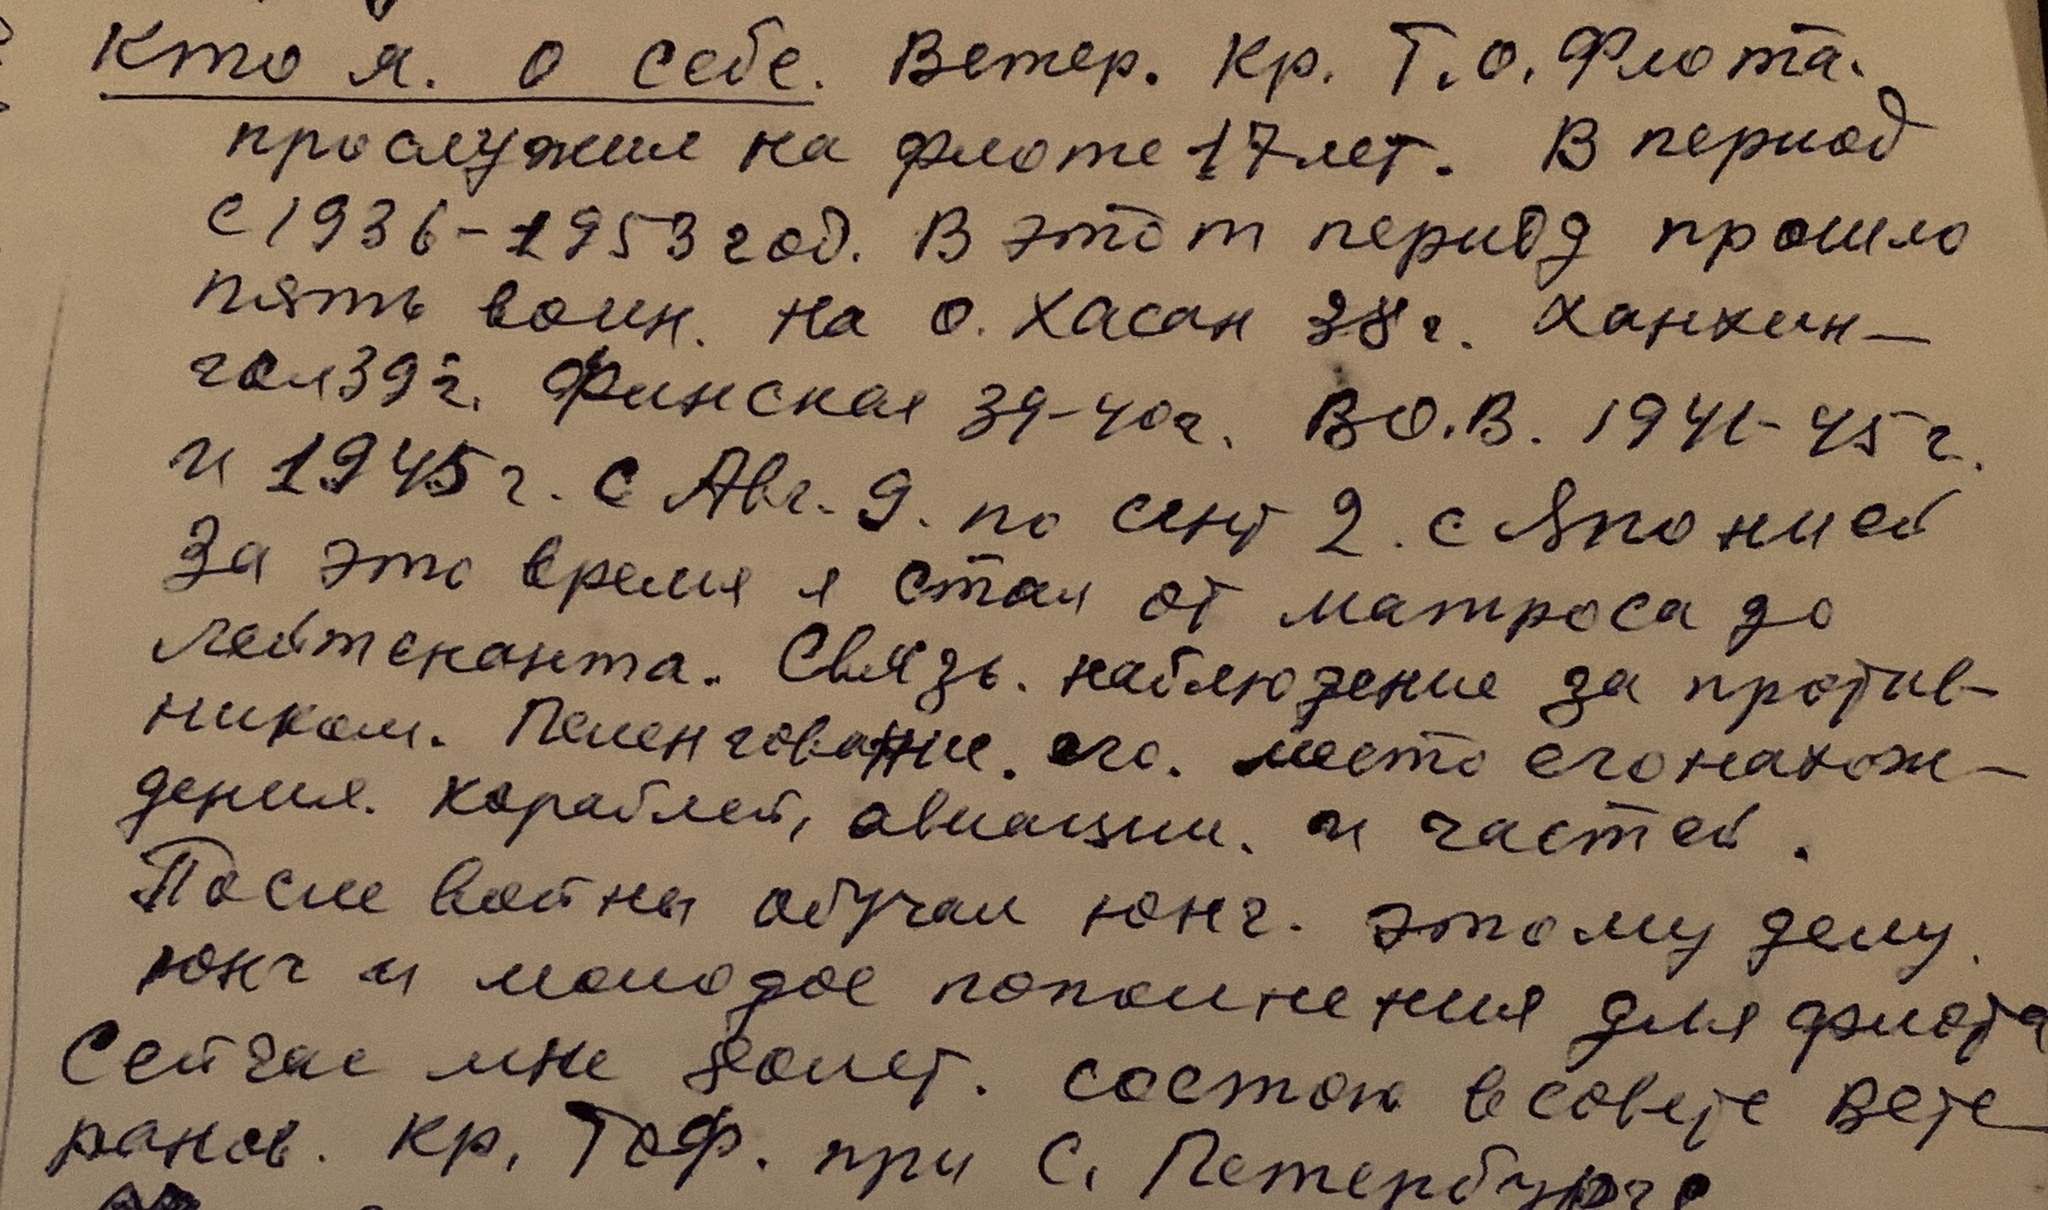 Кто я. О себе. Ветер. Кр. Т.О. Флота.
прослужил на флоте 17 лет. В период
с 1936-1953 год. В этот период прошло
пять воин. на о. Хасан 38 г. Ханхин-
гол 39 г. Финская 39-40 г. ВО.В. 1941-45 г.
и 1945 г. с Авг. 9. по сент 2. с Японией
За это время я стал от матроса до
лейтенанта. Связь. наблюдение за против-
ником. Пеленгование. его. место его нахож-
дения. кораблей, авиации. и частей.
После войны обучал юнг. этому делу.
юнг и молодое пополнения для флота
Сейчас мне лет. состою в совете Вете-
ранов. кр. ТОФ. при С. Петербурге